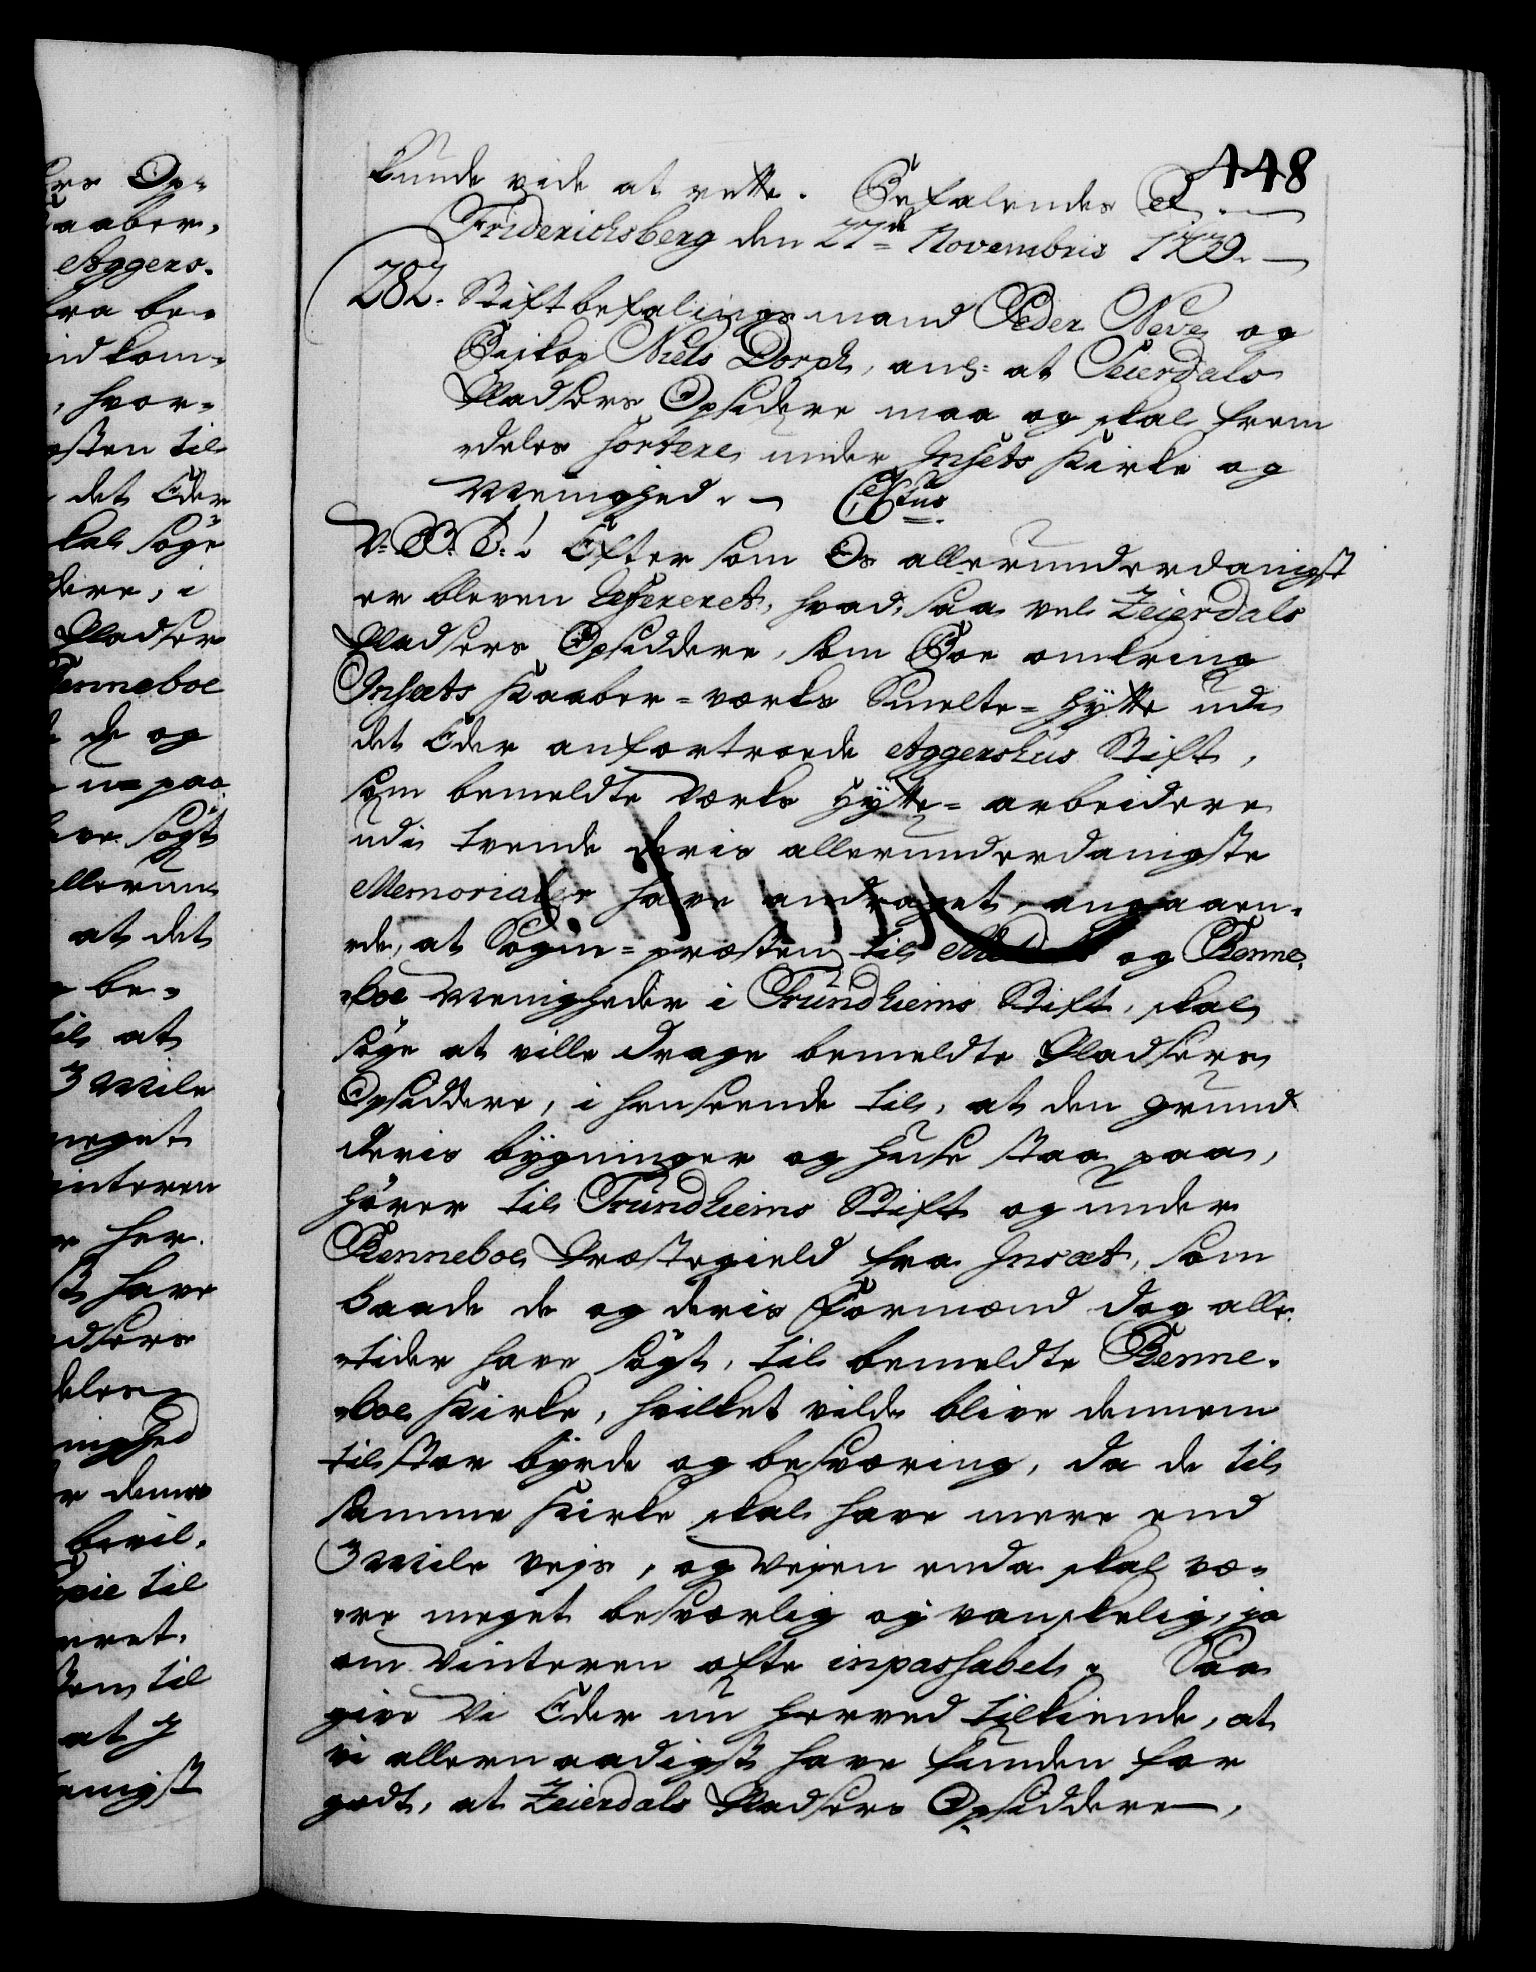 448
kunde vide at rette. Befalendes etc. —
Friderichsberg den 27de Novembris 1739. —
282. Stiftbefalingsmand Peder Neve og
Biskop Niels Dorph, anl: at Seierdals
Pladsers Opsidere maa og skal frem
deles sortere under Insets Kirke og
Menighed. —
V. B. B.! Efter som Os allerunderdanigst
er bleven refereret, hvad, saa vel Zeierdals
Pladsers Opsiddere, som Boe omkring
Insæts Kaaber=værks Smelte=Hÿtte udi
det Eder anfortroede Aggershus Stift,
som bemeldte Værks Hÿtte=arbeidere
udi tvende deris allerunderdanigste
Memorialer have andraget, angaaen-
de, at Sogne=præsten til og Renne-
boe Menigheder i Trundhiems Stift, skal
søge at ville drage bemeldte Pladsers
Opsiddere, i henseende til, at den grund
deris bÿgninger og Huse staa paa,
hører til Trundhiems Stift og under
Renneboe Præstegield fra Insæt, som
baade de og deris Formænd dog alle-
tider have søgt, til bemeldte Renne-
boe Kirke, hvilket vilde blive dennem
til stor bÿrde og besværing, da de til
samme Kirke skal have mere end
3 Mile vejs, og Vejen enda skal væ-
re meget besværlig og vanskelig, ja
om Vinteren ofte inpassabel. Saa
give Vi Eder nu herved tilkiende, at
vi allernaadigst have funden for
godt, at Zeierdals Pladsers Opsiddere,